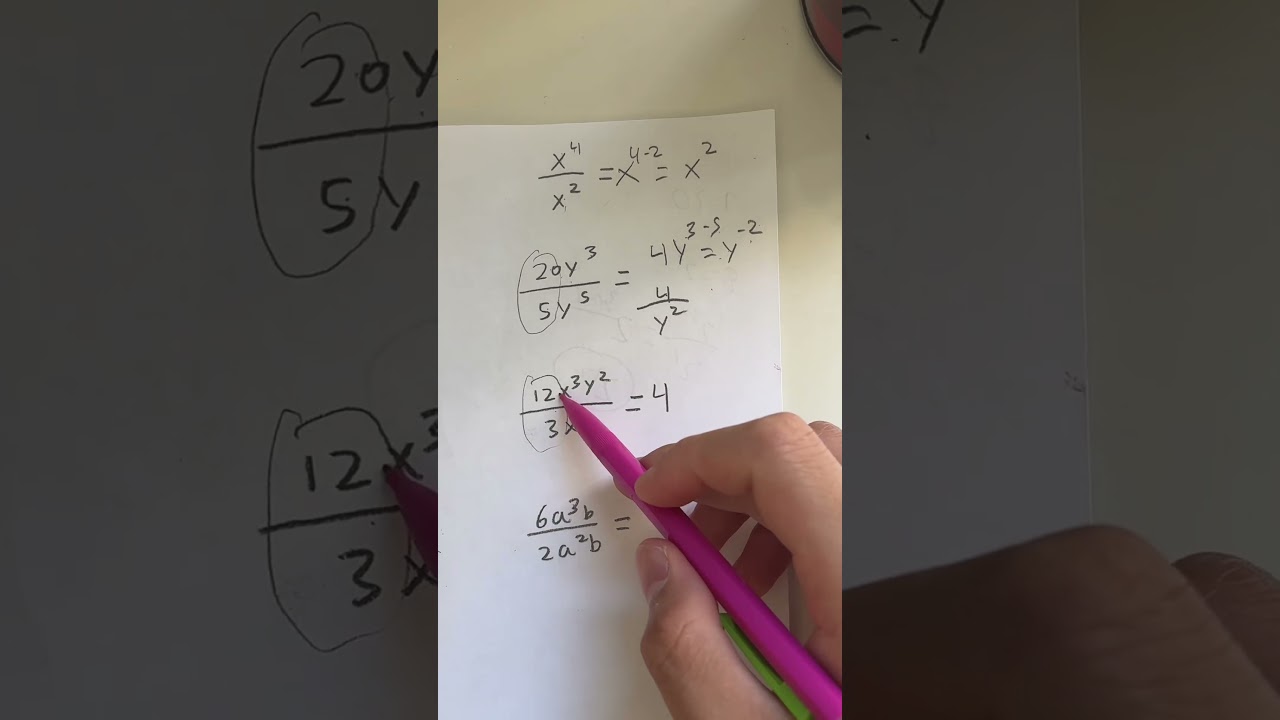 x^4/x^2 = x^{4-2} = x^2
20y^3/5y^5 = 4y^{3-5} = y^{-2}
4/y^2
12x^3y^2/3x = 4
6a^3b/2a^2b =